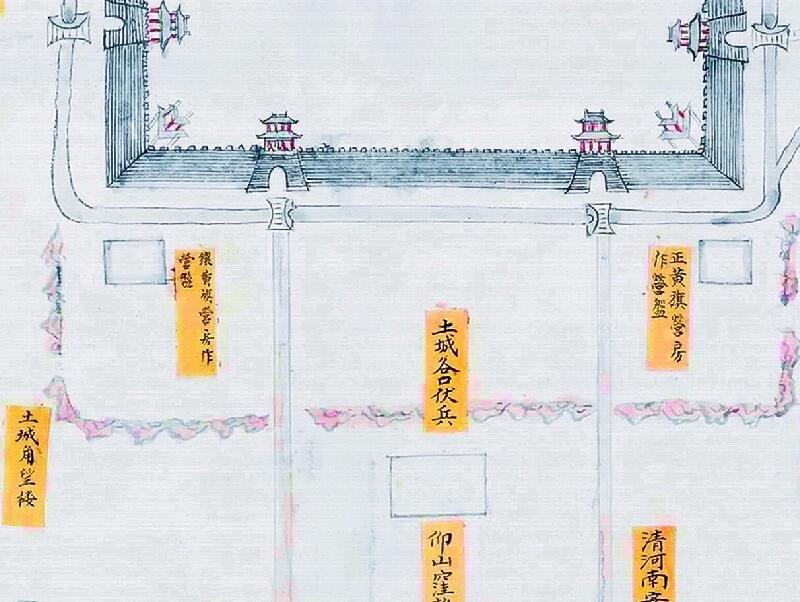 正黃旗營房
作營盤
鑲黃旗營房作
營盤
土城各口伏兵
土城角望楼
清河南
仰山窪